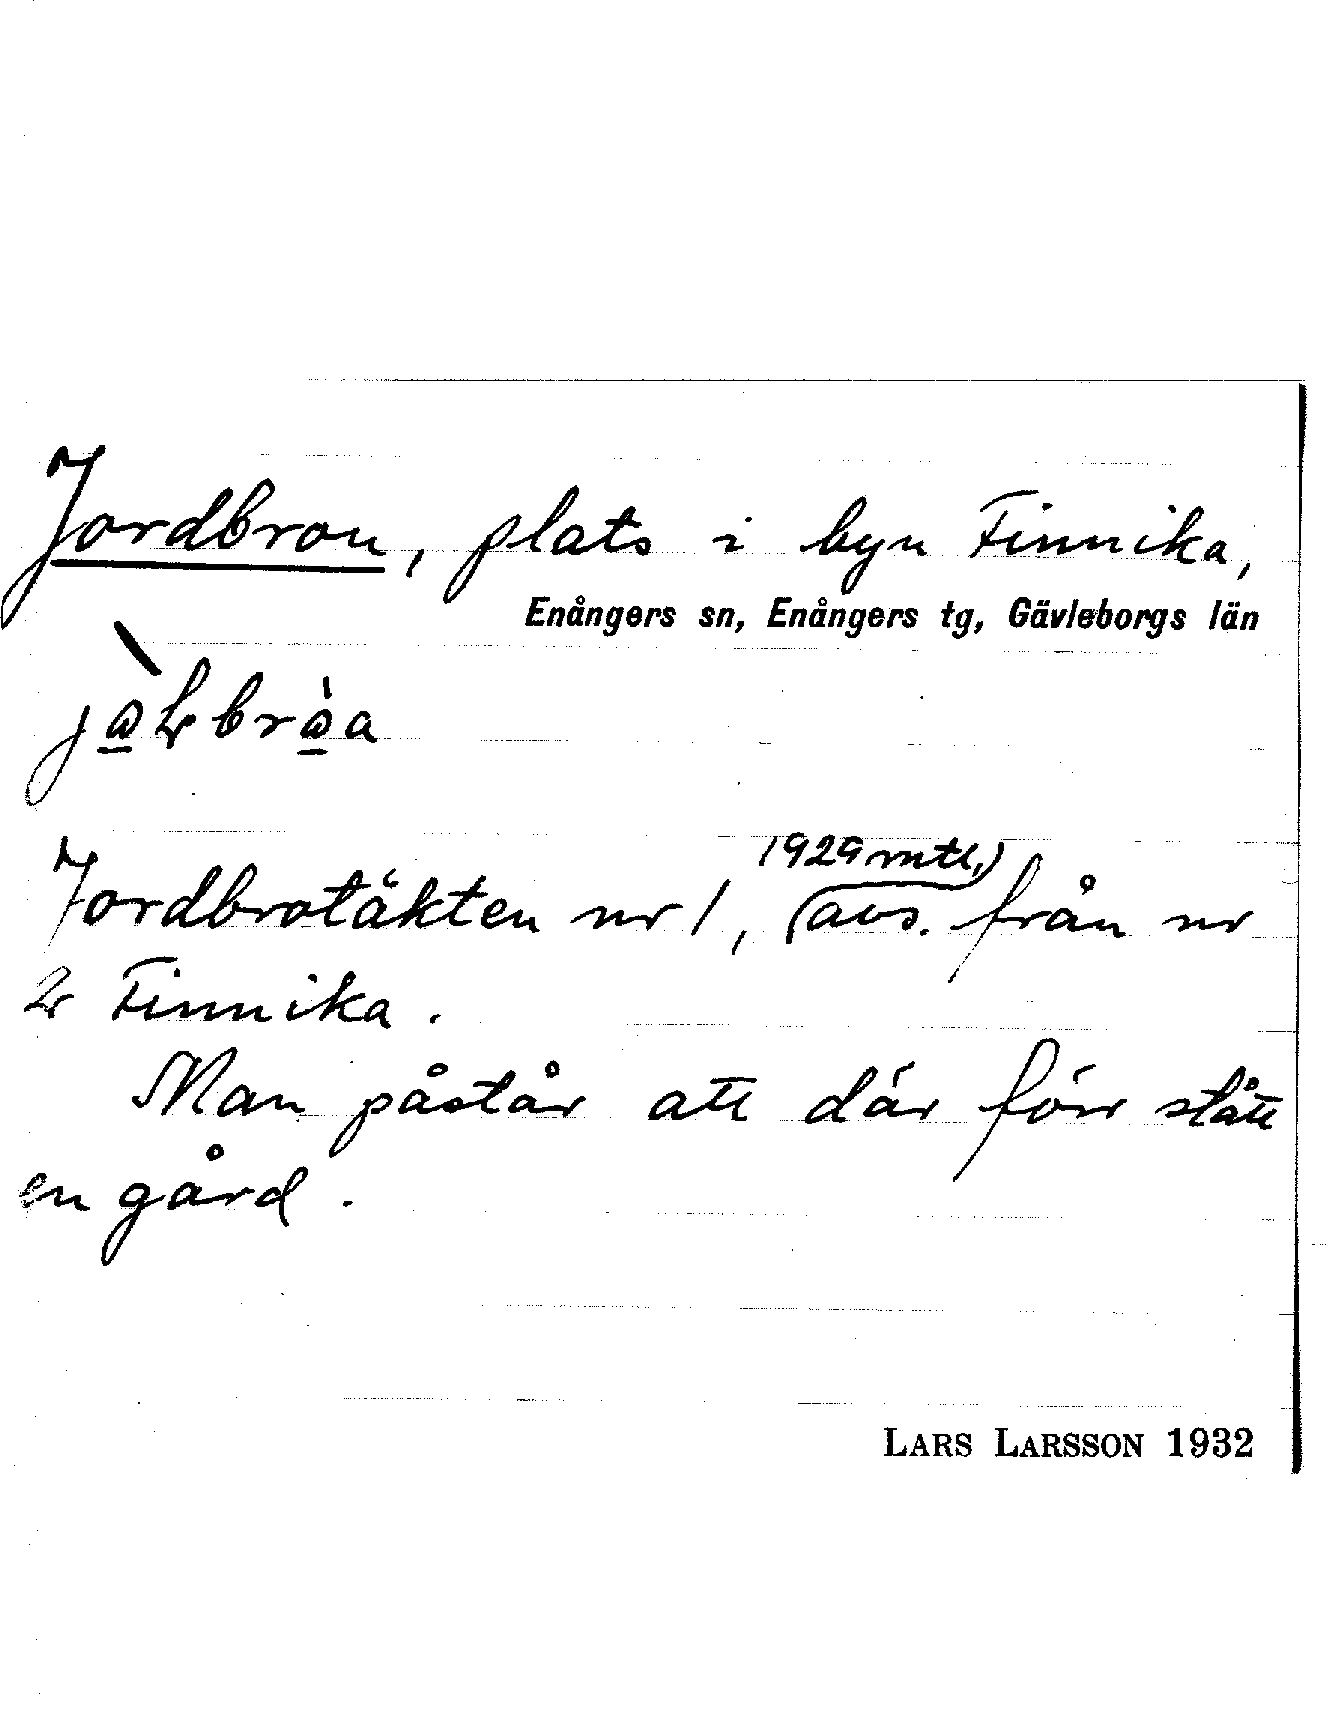 Jordbron, plats i byn Finnika,
Enångers sn, Enångers tg, Gävleborgs län
Jordbrotäkten nr 1, (avs. från nr
1929 mtl.)
2 Finnika.
Man påstår att där förr stått
en gård.
LARS LARSSON 1932